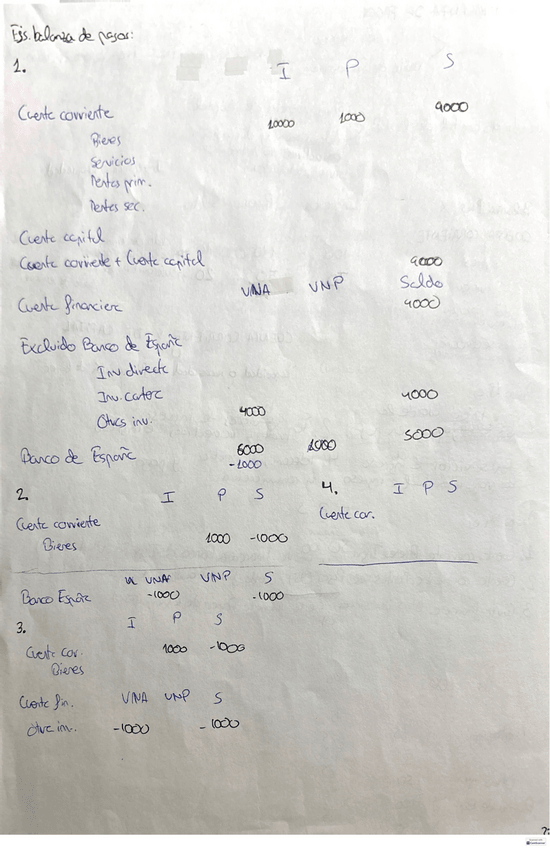 Ejs. balanza de pagos:
1. I P S
Cuenta corriente 10000 1000 9000
Bienes
Servicios
Rentas prim.
Rentas sec.
Cuenta capital
Cuenta corriente + Cuenta capital 9000
VNA VNP Saldo
Cuenta financiera 9000
Excluido Banco de España
Inv directa
Inv. carter 4000
Otras inv. 4000
Banco de España 6000 1000 5000
-1000
2. I P S
Cuenta corriente
Bienes 1000 -1000
VNA VNP S
Banco España -1000 -1000
3. I P S
Cuenta cor. 1000 -1000
Bienes
Cuenta fin. VNA VNP S
Otra inv. -1000 -1000
4. I P S
Cuenta cor.